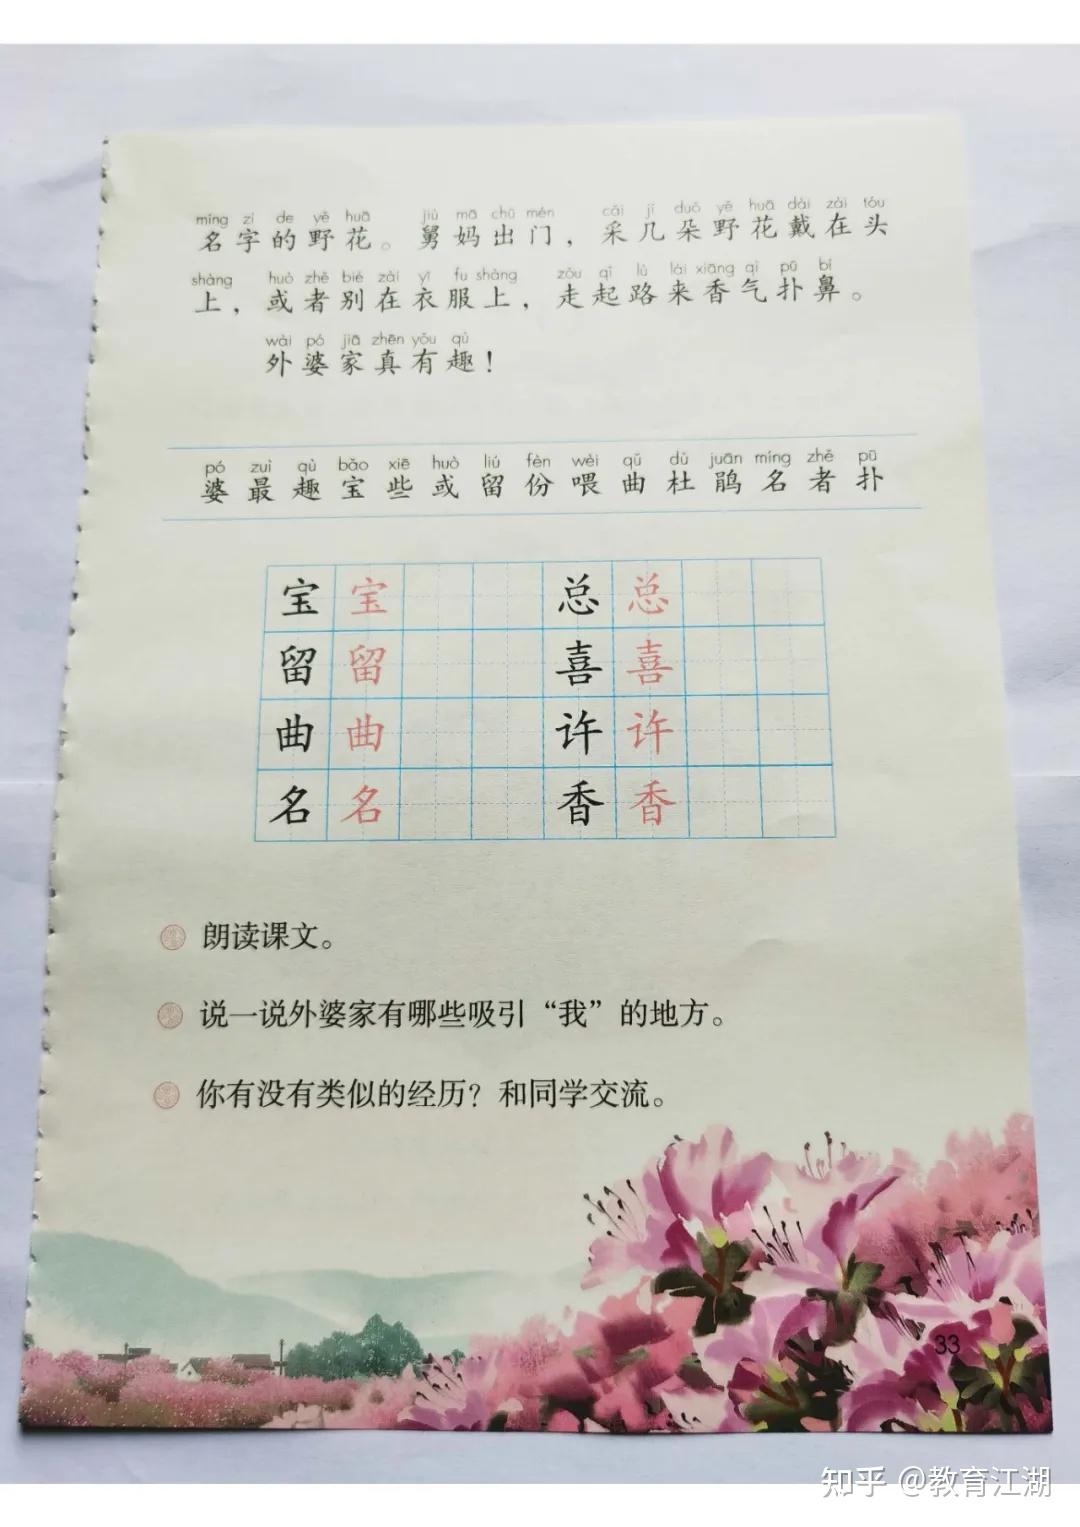 míng zì de yě huā jiù mā chū mén cǎi jǐ duǒ yě huā dài zài tóu
名字的野花。舅妈出门，采几朵野花戴在头
shàng huò zhě bié zài yī fu shàng zǒu qǐ lù lái xiāng qì pū bí
上，或者别在衣服上，走起路来香气扑鼻。
wài pó jiā zhēn yǒu qù
外婆家真有趣！
pó zuì qù bǎo xiē huò liú fèn wèi qǔ dù juān míng zhě pū
婆最趣宝些或留份喂曲杜鹃名者扑
宝宝 总总
留留 喜喜
曲曲 许许
名名 香香
朗读课文。
说一说外婆家有哪些吸引“我”的地方。
你有没有类似的经历？和同学交流。
33
知乎 @教育江湖